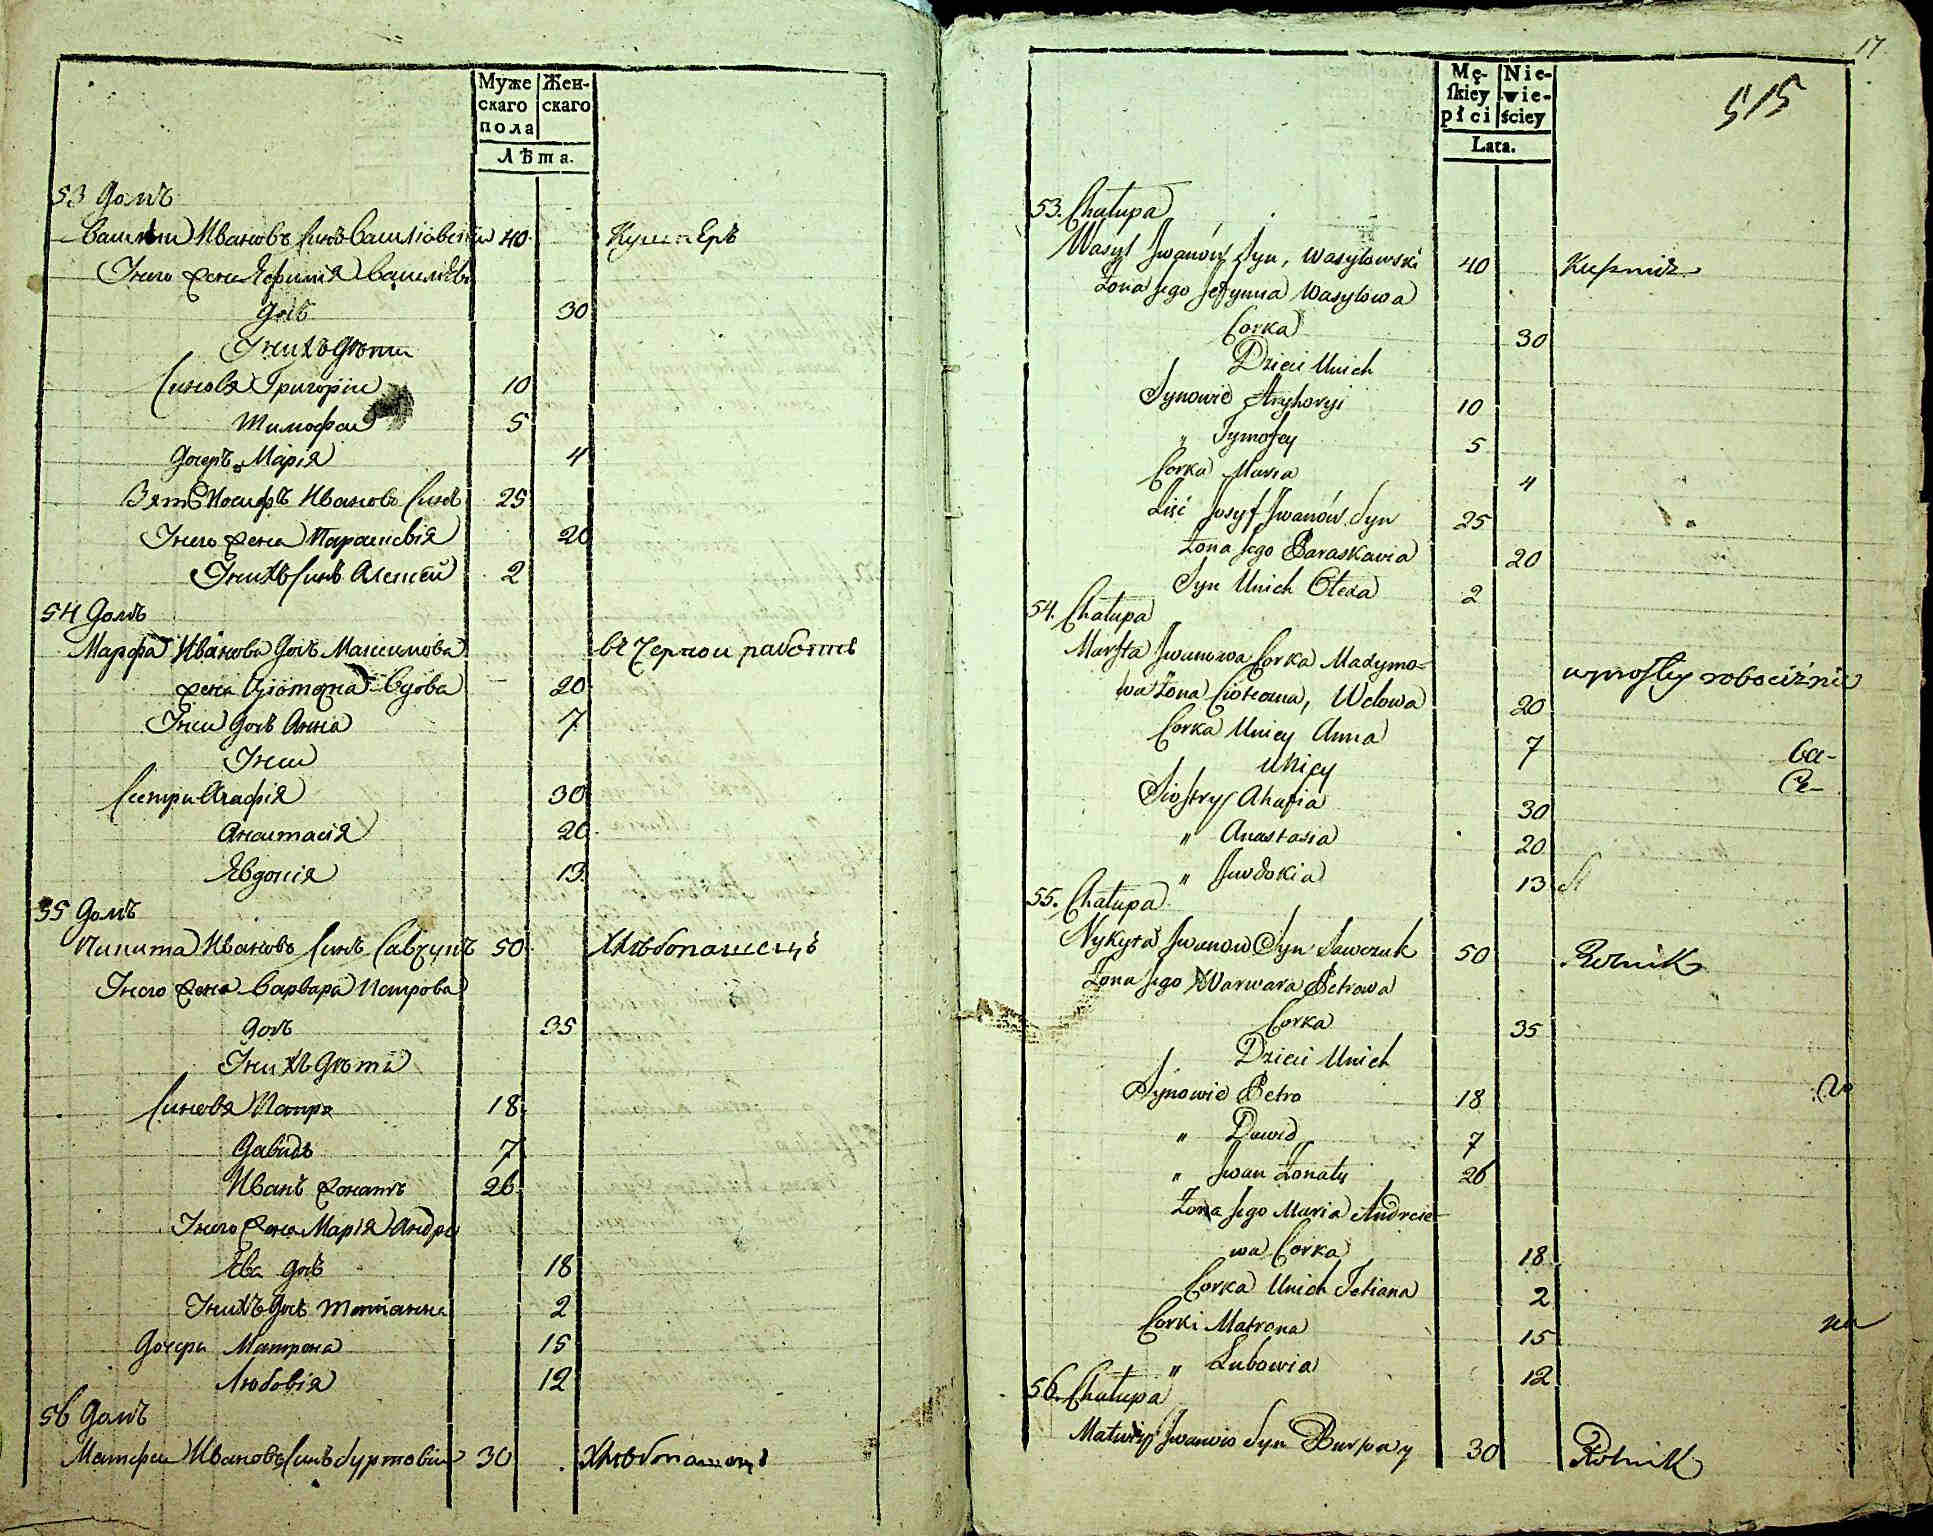 Муже
скаго
пола
Жен-
скаго
Лѣта.
53 Домъ
Василий Ивановъ синъ Василіовский 40 Кушнеръ
Его жена Ефимія Василева
дочь 30
Ихъ дети
Синовя Григорій 10
Тимофей 5
Дочеръ Марія 4
Зять Иосифъ Ивановъ синъ 25
Его жена Параскевія 20
Ихъ синъ Алексей 2
54 Домъ
Марфа Иванова дочь Максимова въ черной работѣ
жена вдова 20
дочь Анна 7
Сестри Агафія 30
Анастасія 20
Явдокія 13
55 Домъ
Никита Ивановъ синъ Савчукъ 50 Хлѣбопашецъ
Его жена Варвара Петрова
дочь 35
Ихъ дѣти
Синовя Петро 18
Давидъ 7
Иванъ жонатъ 26
Его жена Марія Андре
ева дочь 18
Ихъ дочь Татіанна 2
Дочери Матрона 15
Любовія 12
56 Домъ
Матфей Ивановъ синъ 30 Хлѣбопашецъ
17
515
Mę-
skiey
płci
Nie-
wie-
ściey
Lata.
53. Chałupa
Wasyl Jwanów Syn, Wasylowski 40 Kuśnierz
Żona Jego Jefymia Wasylowa
Corka 30
Dzieci Unich
Synowie Hryhoryi 10
" Tymofey 5
Corka Maria 4
Zięć Josyf Jwanów Syn 25
Żona Jego Paraskawia 20
Syn Unich Olexa 2
54. Chałupa
Marfta Jwanowa Corka Madymo-
wa Żona, Wdowa 20 wprostey robociźnie
Corka Uniey Anna 7
Uniey
Siostry Ahafia 30
" Anastasia 20
" Jewdokia 13
55. Chałupa
Nykyta Jwanow Syn Sawczuk 50 Rolnik
Żona Jego Warwara Petrowa
Corka 35
Dzieci Unich
Synowie Petro 18
" Dawid 7
" Jwan Żonaty 26
Żona Jego Maria Andreie-
wa Corka 18
Corka Unich Tetiana 2
Corki Matrona 15
" Lubowia 12
56. Chałupa
Matwiy Jwanów Syn 30 Rolnik